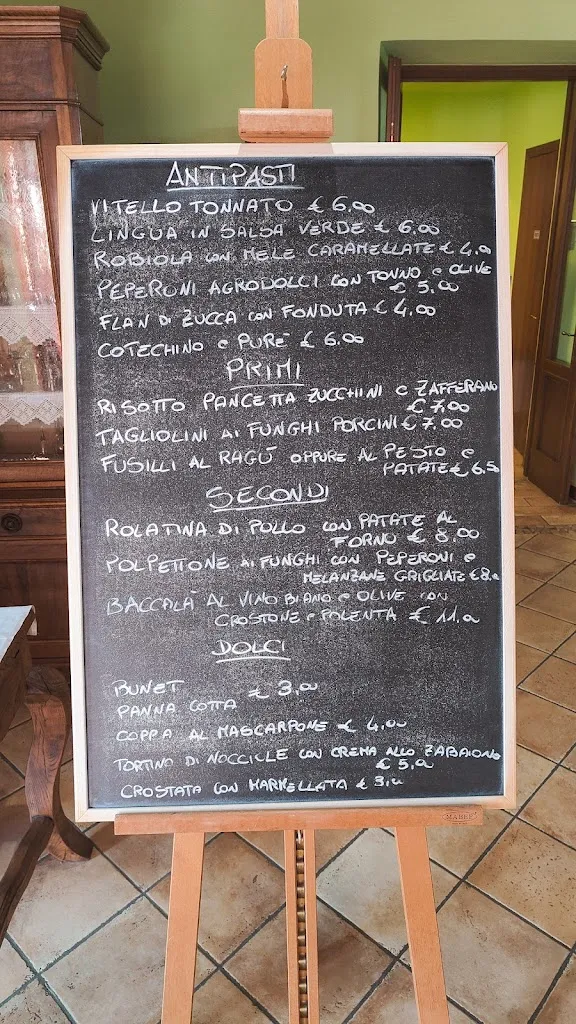 ANTIPASTI
VITELLO TONNATO € 6,00
LINGUA IN SALSA VERDE € 6,00
ROBIOLA CON MELE CARAMELLATE € 4,00
PEPERONI AGRODOLCI CON TONNO e OLIVE
€ 5,00
FLAN DI ZUCCA CON FONDUTA € 4,00
COTECHINO e PURÈ € 6,00
PRIMI
RISOTTO PANCETTA ZUCCHINI e ZAFFERANO
€ 7,00
TAGLIOLINI AI FUNGHI PORCINI € 7,00
FUSILLI AL RAGÙ OPPURE AL PESTO e
PATATE € 6,50
SECONDI
ROLATINA DI POLLO CON PATATE AL
FORNO € 8,00
POLPETTONE AI FUNGHI CON PEPERONI e
MELANZANE GRIGLIATE € 8,00
BACCALÀ AL VINO BIANCO e OLIVE CON
CROSTONE e POLENTA € 11,00
DOLCI
BUNET € 3,00
PANNA COTTA
COPPA AL MASCARPONE € 4,00
TORTINO DI NOCCIOLE CON CREMA ALLO ZABAIONE
€ 5,00
CROSTATA CON MARMELLATA € 3,00